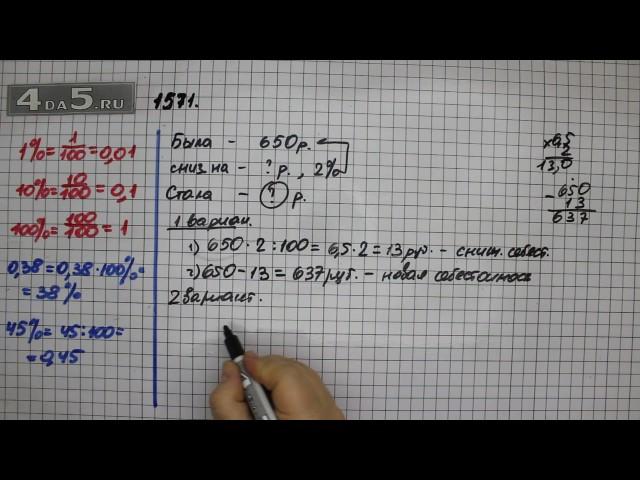 4DA5.RU
1571.
1% = 1/100 = 0,01
10% = 10/100 = 0,1
100% = 100/100 = 1
0,38 = 0,38 · 100% =
= 38%
45% = 45 : 100 =
= 0,45
Была - 650 р.
сниз. на - ? р., 2%
Стала - ? р.
1 вариан.
1) 650 · 2 : 100 = 6,5 · 2 = 13 руб. - сниж. себест.
2) 650 - 13 = 637 руб. - новая себестоимость
2 вариант.
× 6,5
2
13,0
- 650
13
637